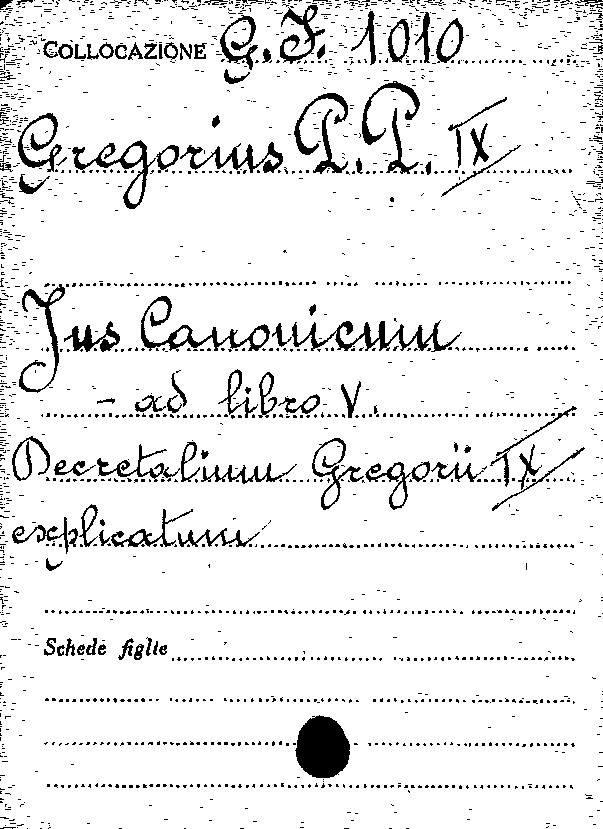 COLLOCAZIONE G. F. 1010
Gregorius P. P. IX
Jus Canonicum
- ad libro V.
Decretalium Gregorii IX
explicatum
Schede figlie